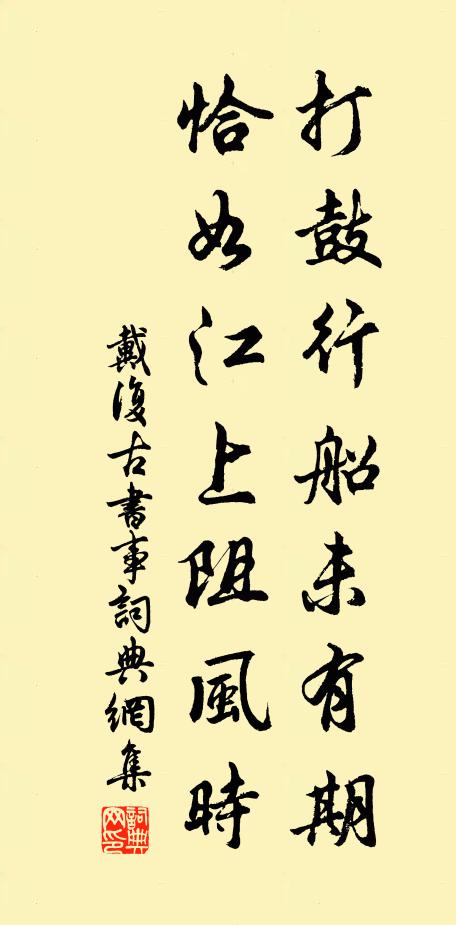 打鼓行船未有期
恰如江上阻風時
戴復古書事詞典網集
詞典网印